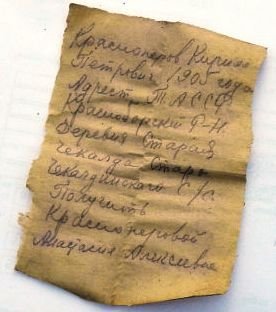 Красноперов Кирилл
Петрович 1905 года
Адрест Т.АССР
Красноборский р-н.
Деревня Старая
Чекалда Старо
Чекалдинского с/с.
Получить
Красноперовой
Анастасие Алексеевне